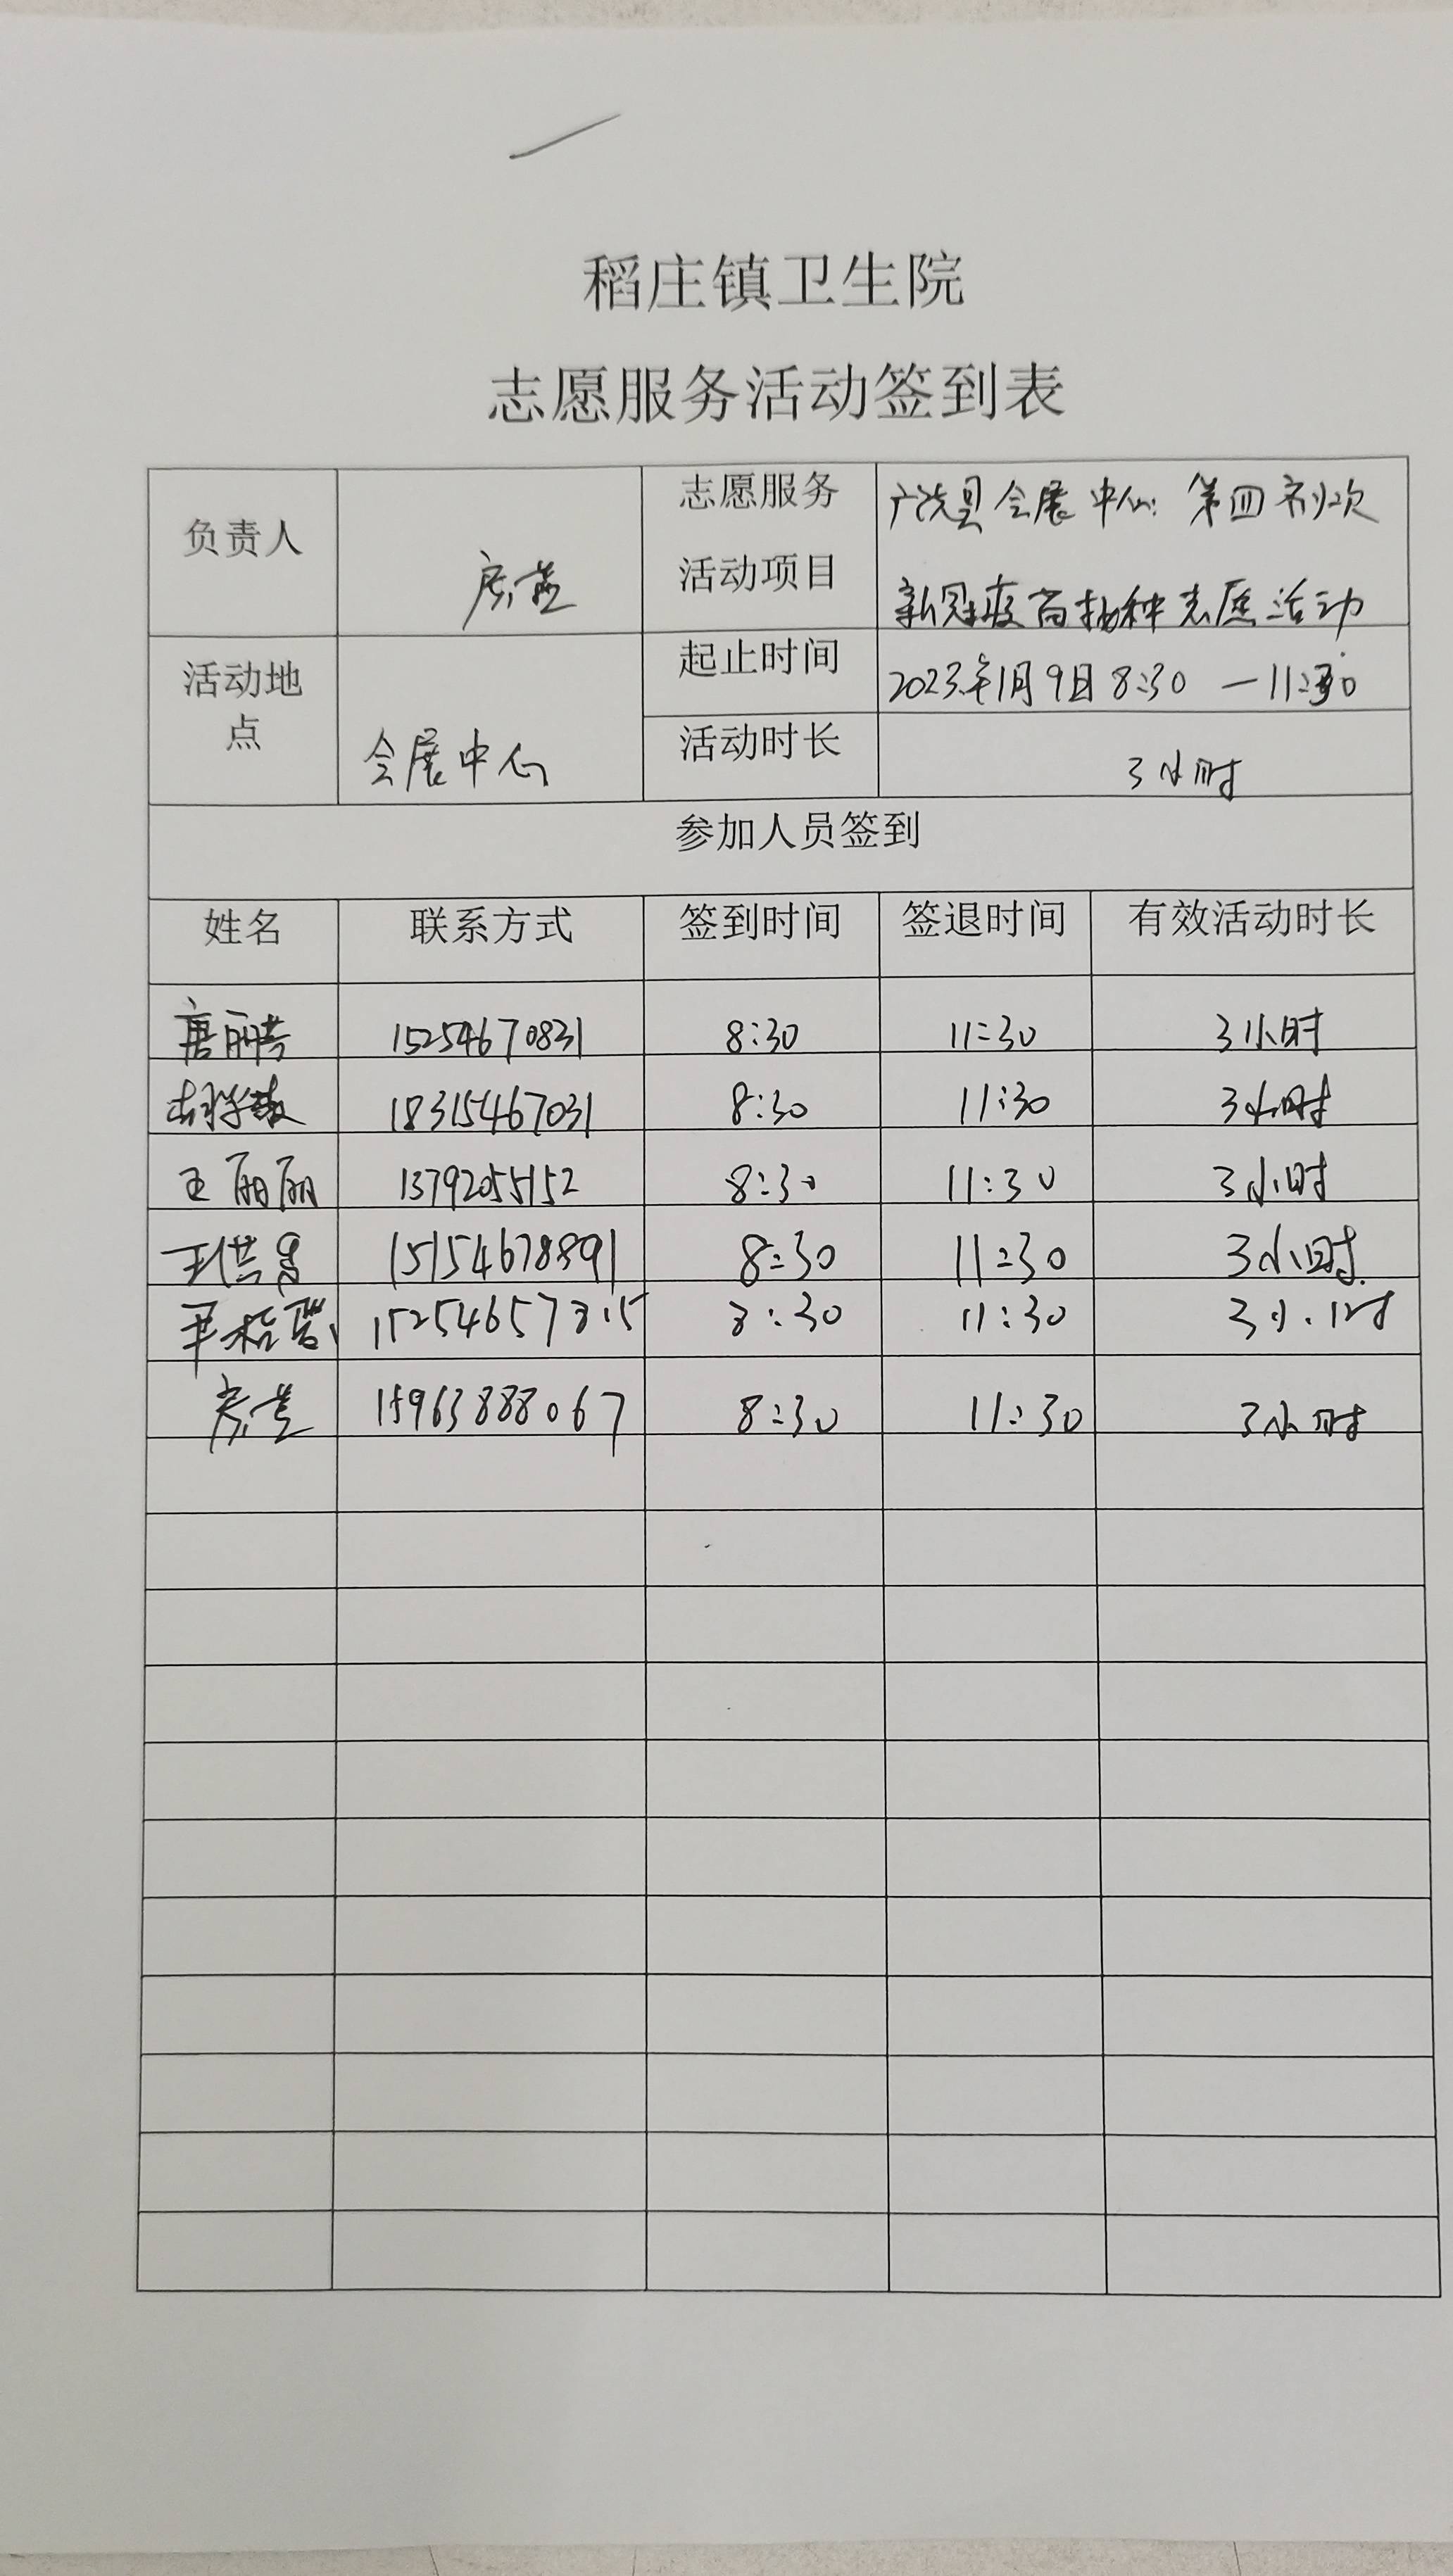 稻庄镇卫生院
志愿服务活动签到表
负责人
志愿服务
活动项目
广饶县会展中心第四剂次
新冠疫苗接种志愿活动
活动地
点
会展中心
起止时间
2023年1月9日8:30—11:30
活动时长
3小时
参加人员签到
姓名 联系方式 签到时间 签退时间 有效活动时长
唐丽芳 15254670831 8:30 11:30 3小时
18315467031 8:30 11:30 3小时
王丽丽 13792055152 8:30 11:30 3小时
15154678891 8:30 11:30 3小时
15254657815 8:30 11:30 3小时
15963888067 8:30 11:30 3小时